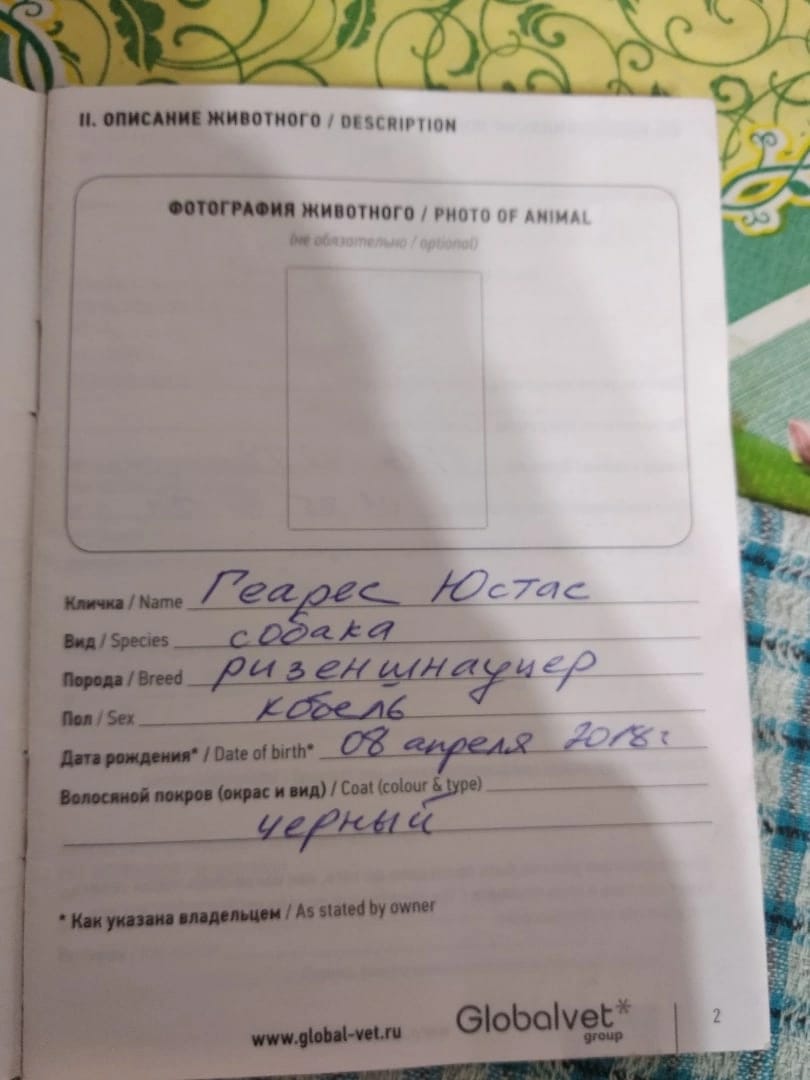 II. ОПИСАНИЕ ЖИВОТНОГО / DESCRIPTION
ФОТОГРАФИЯ ЖИВОТНОГО / PHOTO OF ANIMAL
(не обязательно / optional)
Кличка / Name Геарес Юстас
Вид / Species собака
Порода / Breed ризеншнауцер
Пол / Sex кобель
Дата рождения* / Date of birth* 08 апреля 2018г
Волосяной покров (окрас и вид) / Coat (colour & type)
черный
* Как указана владельцем / As stated by owner
www.global-vet.ru Globalvet* 2
group